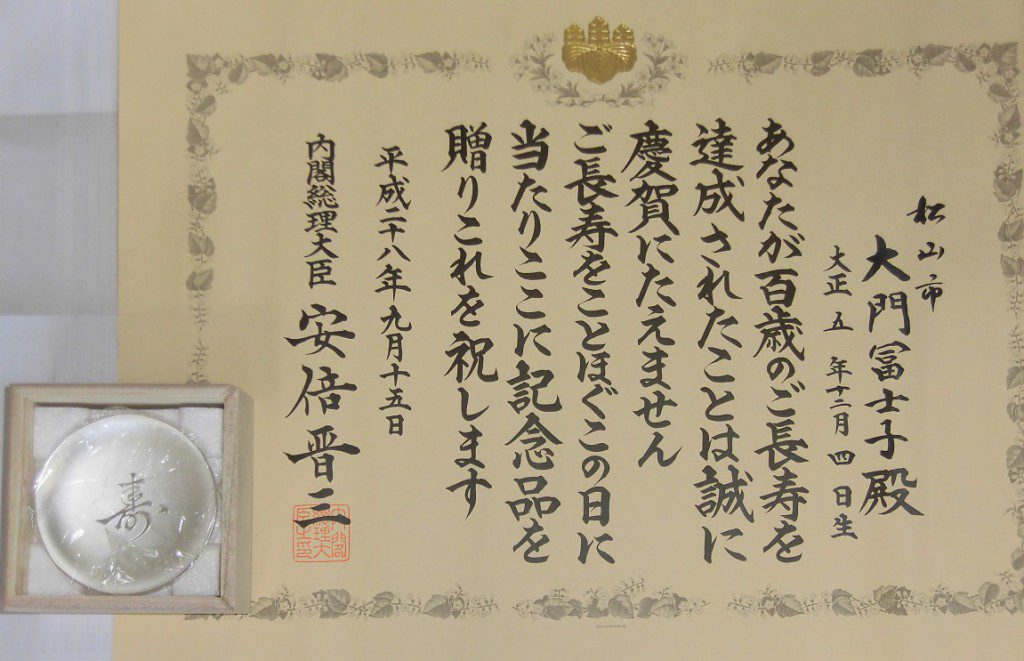 松山市
大門冨士子殿
大正五年十二月四日生
あなたが百歳のご長寿を
達成されたことは誠に
慶賀にたえません
ご長寿をことほぐこの日に
当たりここに記念品を
贈りこれを祝します
平成二十八年九月十五日
内閣総理大臣 安倍晋三
寿